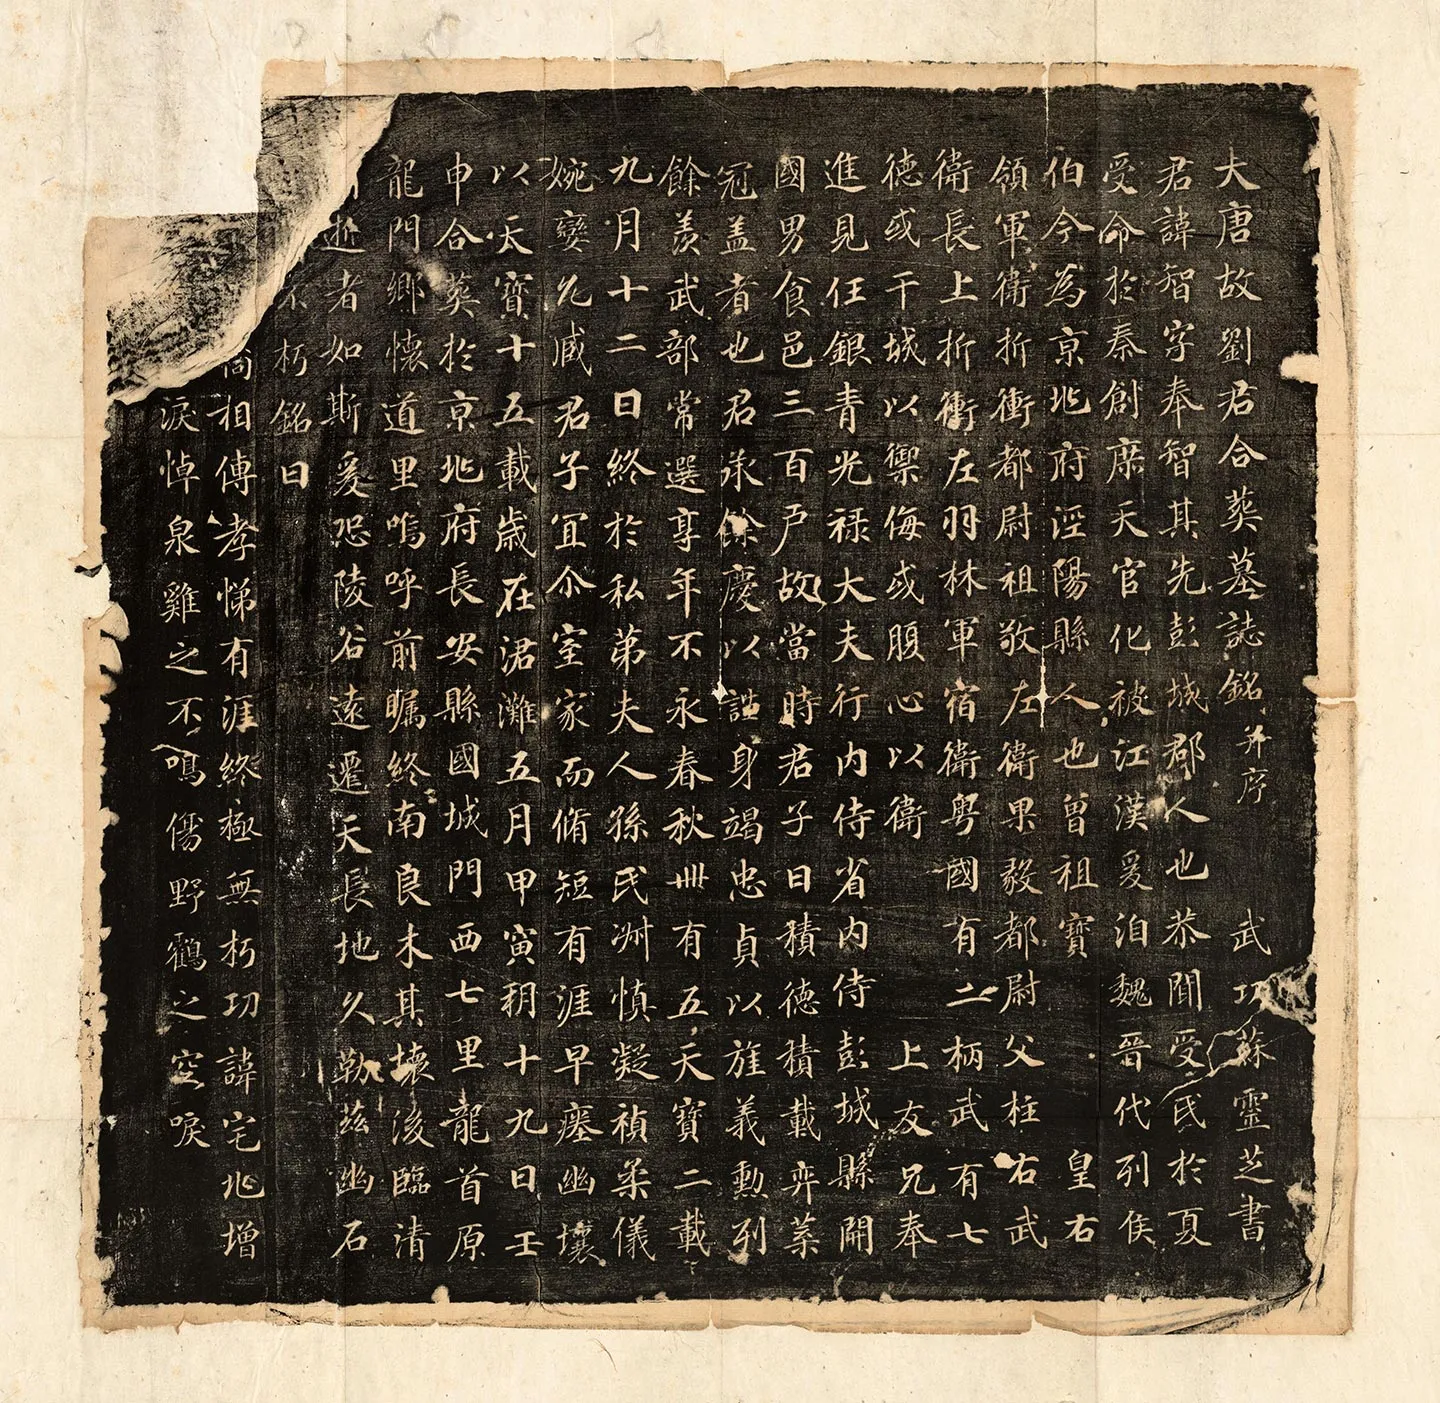 大唐故劉君合葬墓誌銘并序 武功蘇靈芝書
君諱智字奉智其先彭城郡人也恭聞受氏於夏
受命於秦創庶天官化被江漢爰洎魏晉代列侯
伯今為京兆府涇陽縣人也曾祖寶 皇右
領軍衛折衝都尉祖敬左衛果毅都尉父柱右武
衛長上折衝左羽林軍宿衛粤國有二柄武有七
德或干城以禦侮或腹心以衛 上友兄奉
進見任銀青光禄大夫行内侍省内侍彭城縣開
國男食邑三百戶故當時君子曰積德積載弈葉
冠盖者也君承餘慶以謹身竭忠貞以旌義勳列
餘羨武部常選享年不永春秋卌有五天寶二載
九月十二日終於私第夫人孫氏淑慎凝禎柔儀
婉孌允臧君子宜尒室家而脩短有涯早瘞幽壤
以天寶十五載歲在涒灘五月甲寅朔十九日壬
申合葬於京兆府長安縣國城門西七里龍首原
龍門鄉懷道里嗚呼前矚終南良木其壞後臨清
逝者如斯爰恐陵谷遠遷天長地久勒茲幽石
不朽銘曰
相傳孝悌有涯終極無朽功諱宅兆增
淚悼泉雞之不鳴傷野鸖之空唳